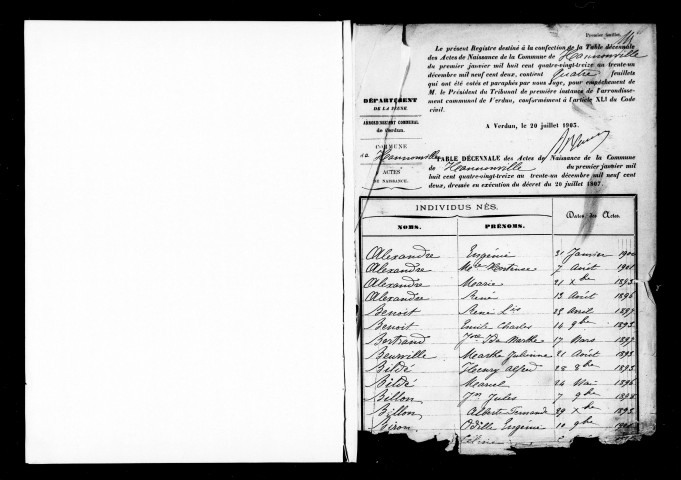 Premier feuillet.
Le présent Registre destiné à la confection de la Table décennale
des Actes de Naissance de la Commune de Hannonville
du premier janvier mil huit cent quatre-vingt-treize au trente-un
décembre mil neuf cent deux, contient quatre feuillets
qui ont été cotés et paraphés par nous Juge, pour empêchement de
M. le Président du Tribunal de première instance de l'arrondisse-
ment communal de Verdun, conformément à l'article XLI du Code
civil.
A Verdun, le 20 juillet 1903.
DÉPARTEMENT
DE LA MEUSE.
ARRONDISSEMENT COMMUNAL
de Verdun.
COMMUNE
de Hannonville
ACTES
DE NAISSANCE.
TABLE DÉCENNALE des Actes de Naissance de la Commune
de Hannonville du premier janvier mil
huit cent quatre-vingt-treize au trente-un décembre mil neuf cent
deux, dressée en exécution du décret du 20 juillet 1807.
INDIVIDUS NÉS. Dates des Actes.
NOMS. PRÉNOMS.
Alexandre Eugénie 31 Janvier 1900
Alexandre Mie Hortense 7 Août 1901
Alexandre Marie 21 Xbre 1893
Alexandre René 13 Août 1896
Benoit René Lis Avril 1897
Benoit Emile Charles 14 9bre 1893
Bertrand Ida Marthe 17 Mars 1897
Beurville Marthe Julienne 21 Août 1893
Bildé Henry Alfred 28 8bre 1893
Bildé Marcel 24 Mai 1896
Billon Jn Jules 7 9bre 1898
Billon Albert Fernand 29 Xbre 1893
Biron Odille Eugénie 10 9bre